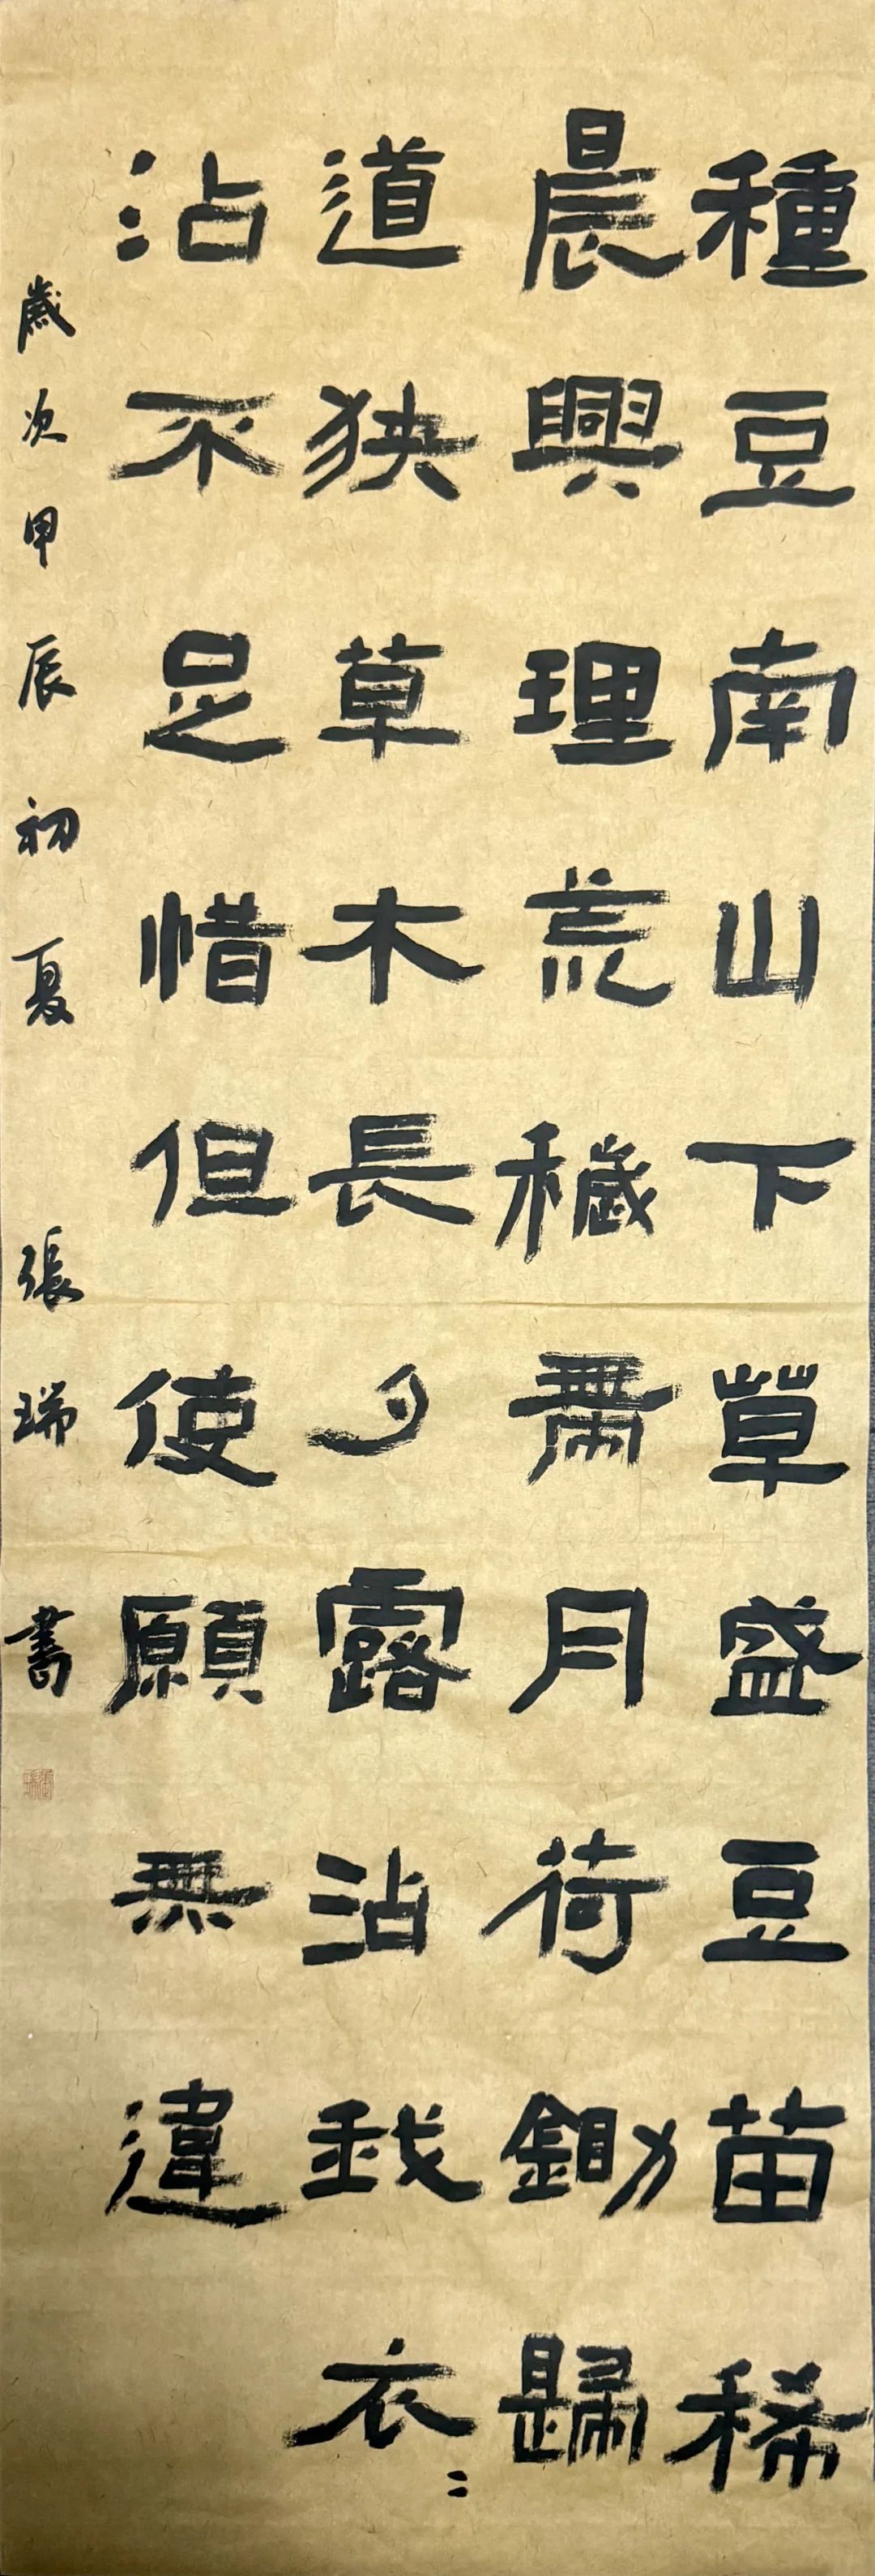 種豆南山下草盛豆苗稀
晨興理荒穢帶月荷鋤歸
道狹草木長夕露沾我衣〻
沾不足惜但使願無違
歲次甲辰初夏 張瑞 書